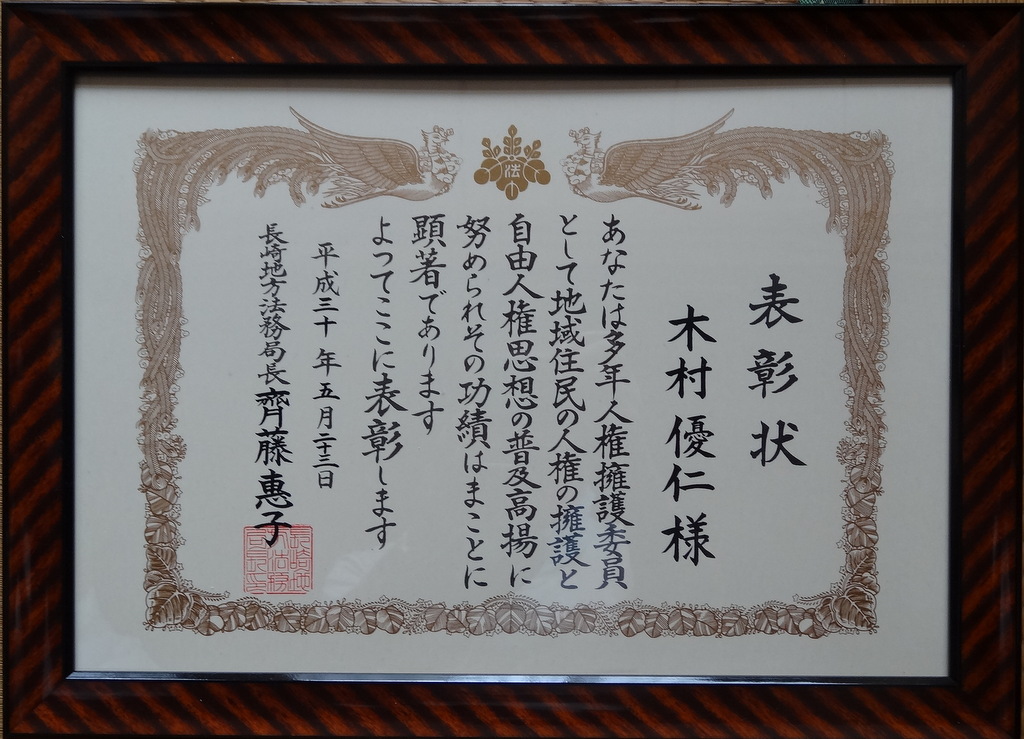 法
表彰状
木村優仁様
あなたは多年人権擁護委員
として地域住民の人権の擁護と
自由人権思想の普及高揚に
努められその功績はまことに
顕著であります
よってここに表彰します
平成三十年五月二十三日
長崎地方法務局長齊藤恵子